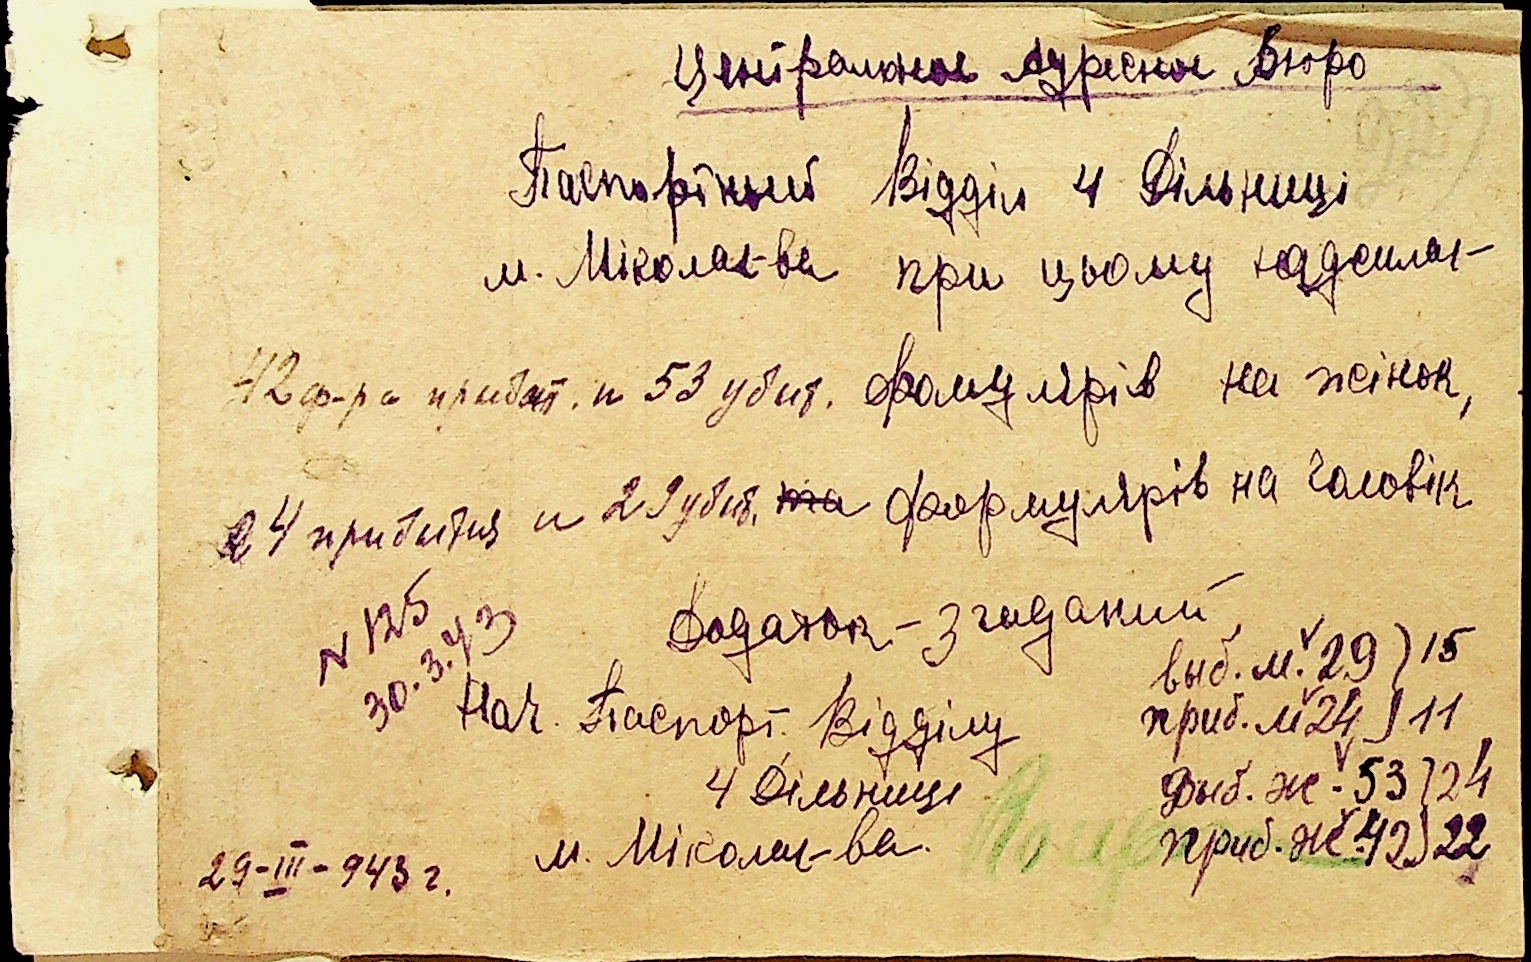 Центральное Адресное Бюро
Паспортний Відділ 4 Дільниці
м. Міколає-ва при цьому надсилає-
42 ф-ра прибит. и 53 убит. фомулярів на жінок,
24 прибития и 29 убит. та формулярів на Чоловік
Додаток - Згаданий
N 125
30.3.43
Нач. Паспорт. Відділу
4 Дільниці
м. Міколає-ва.
29-III-943 г.
выб. м. 29) 15
приб. м 24) 11
Выб. ж - 53) 24
приб. ж 42) 22